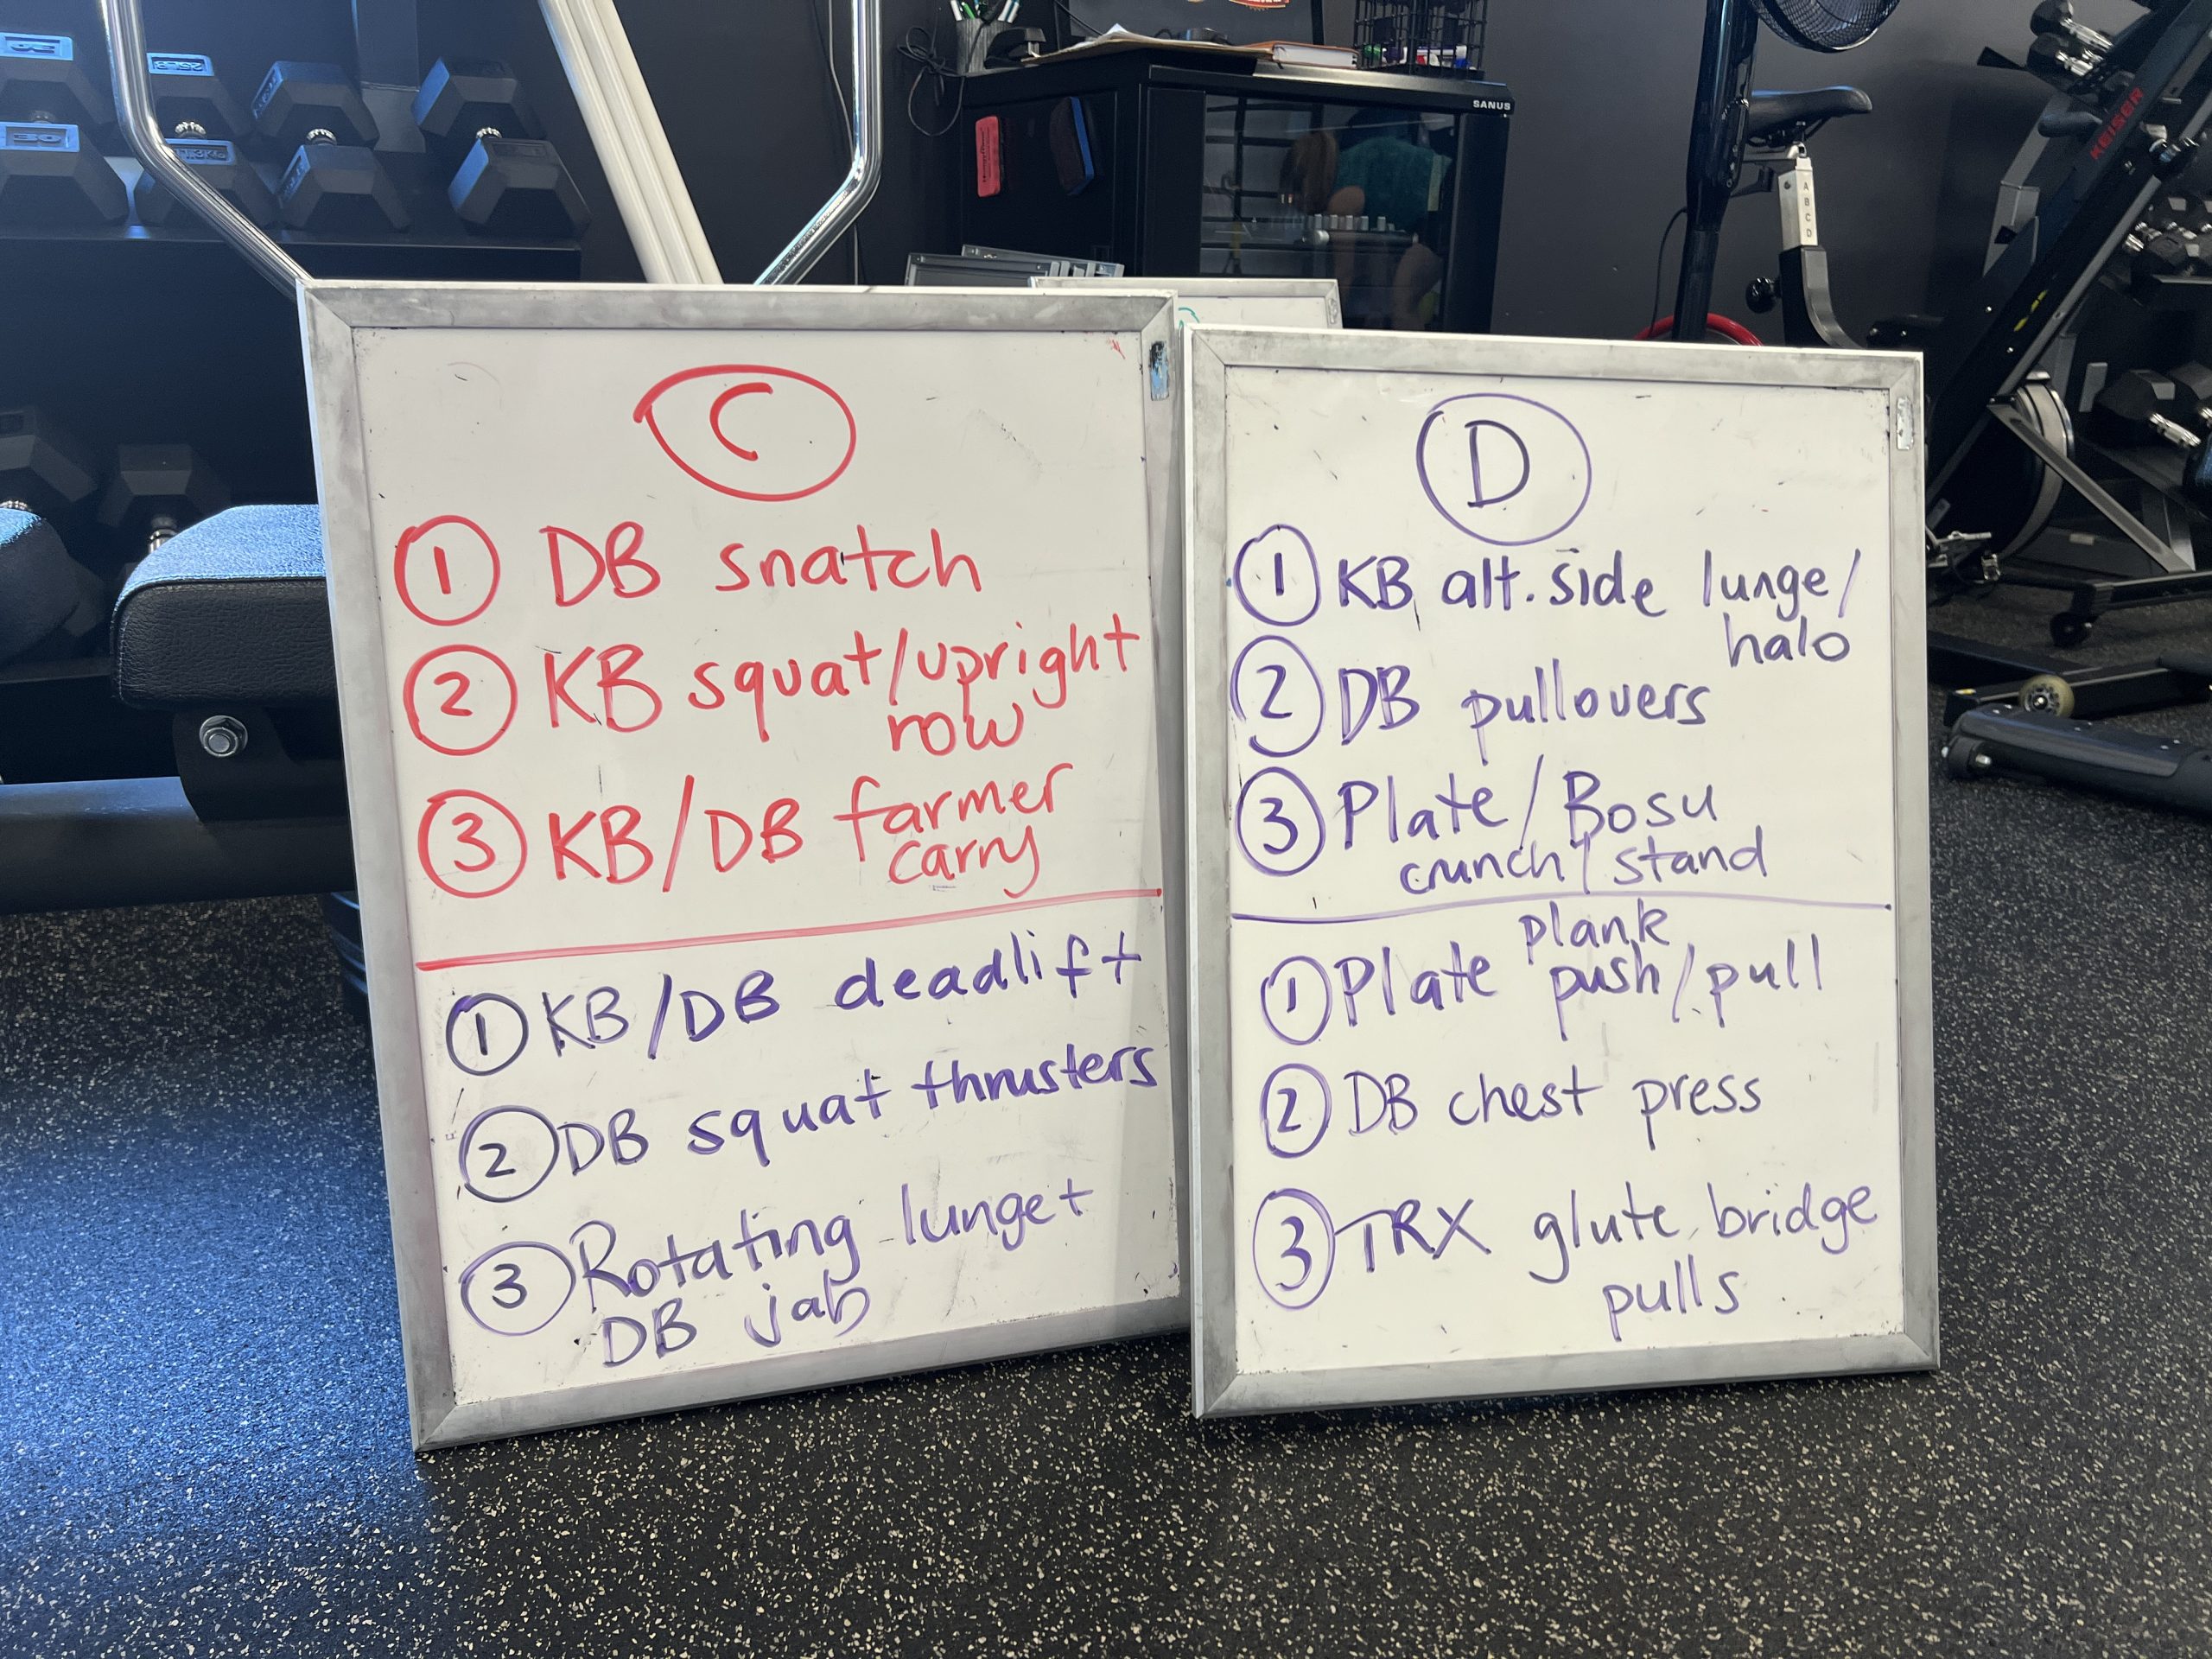 SANUS
KEISER
A
B
C
D
30
25LB
C
1 DB snatch
2 KB squat/upright
row
3 KB/DB farmer
carry
1 KB/DB deadlift
2 DB squat thrusters
3 Rotating lunge +
DB jab
D
1 KB alt. side lunge/
halo
2 DB pullovers
3 Plate/Bosu
crunch/stand
plank
1 Plate push/pull
2 DB chest press
3 TRX glute bridge
pulls